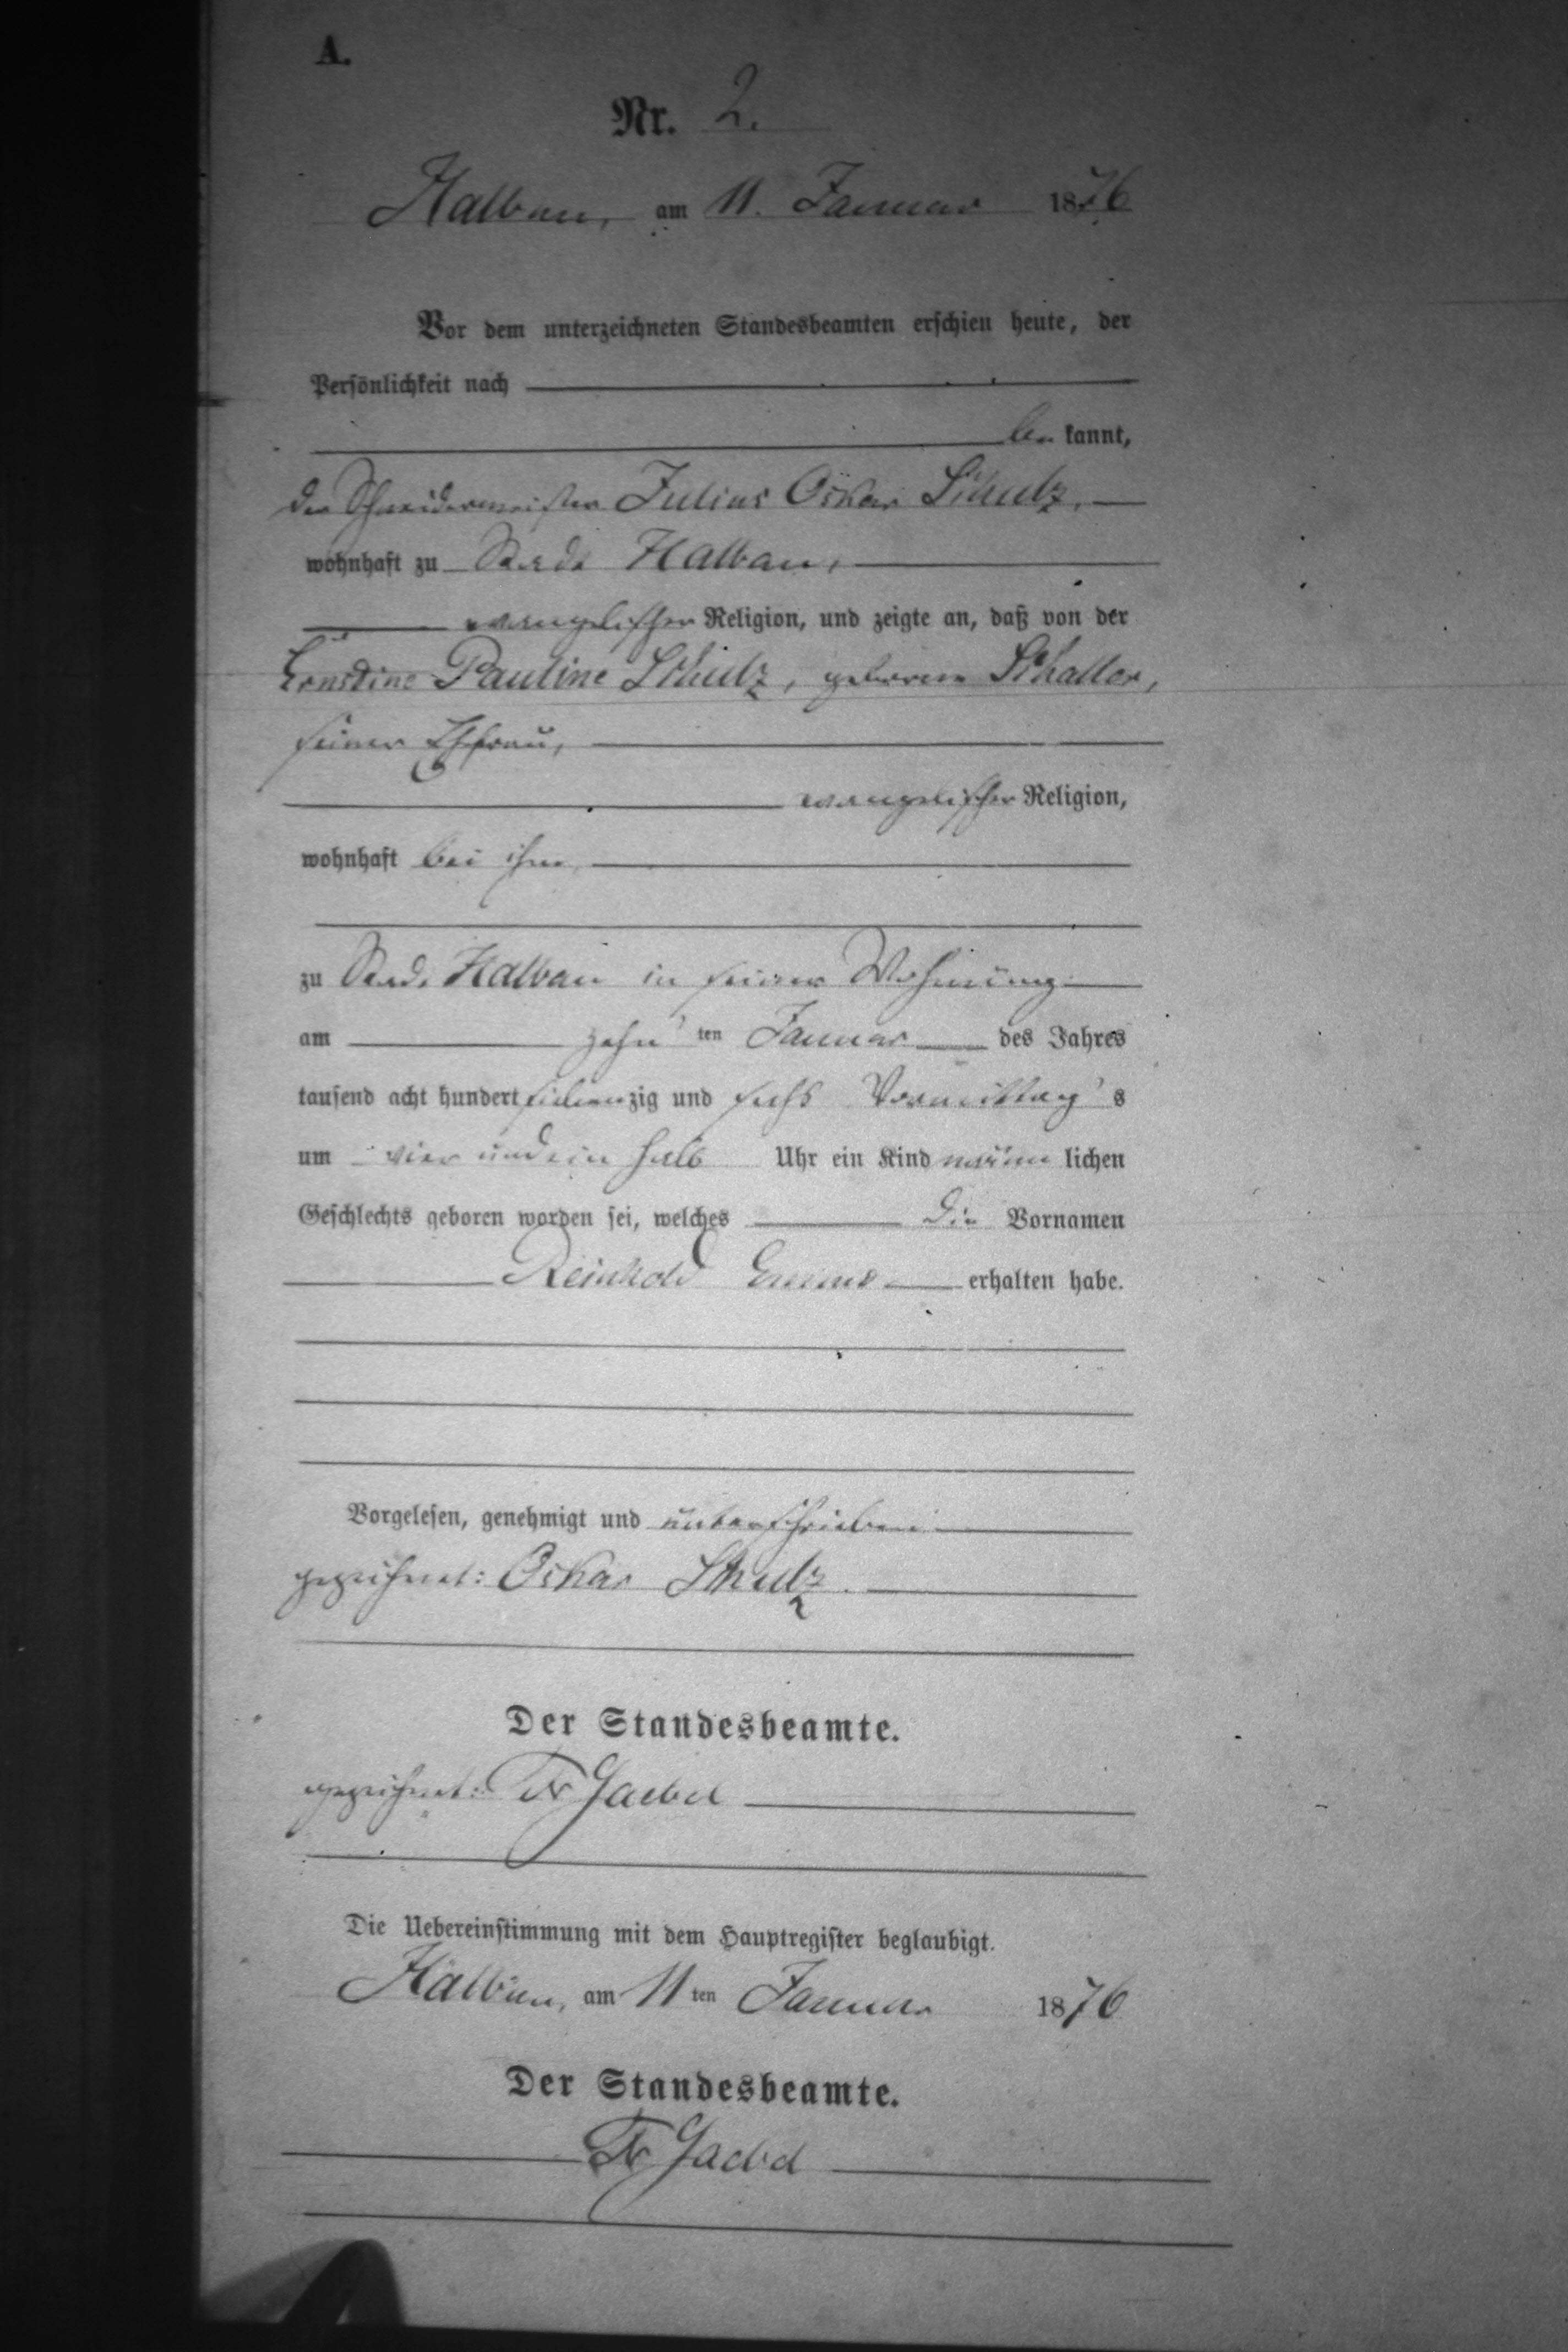 A.
Nr. 2.
Halbau, am 11. Januar 1876
Vor dem unterzeichneten Standesbeamten erschien heute, der
Persönlichkeit nach
be kannt,
der Schneidermeister Julius Oskar Schulz,
wohnhaft zu Stadt Halbau,
evangelischer Religion, und zeigte an, daß von der
Ernstine Pauline Schulz, geborene Schaller,
seiner Ehefrau,
evangelischer Religion,
wohnhaft bei ihm,
zu Stadt Halbau in seiner Wohnung
am zehn ten Januar des Jahres
tausend acht hundert siebenzig und sechs Vormittag s
um vier und ein halb Uhr ein Kind männ lichen
Geschlechts geboren worden sei, welches die Vornamen
Reinhold erhalten habe.
Vorgelesen, genehmigt und unterschrieben
gezeichnet: Oskar Schulz.
Der Standesbeamte.
gezeichnet: Fr Gaebel
Die Uebereinstimmung mit dem Hauptregister beglaubigt.
Halbau, am 11 ten Januar 1876
Der Standesbeamte.
Fr Gaebel